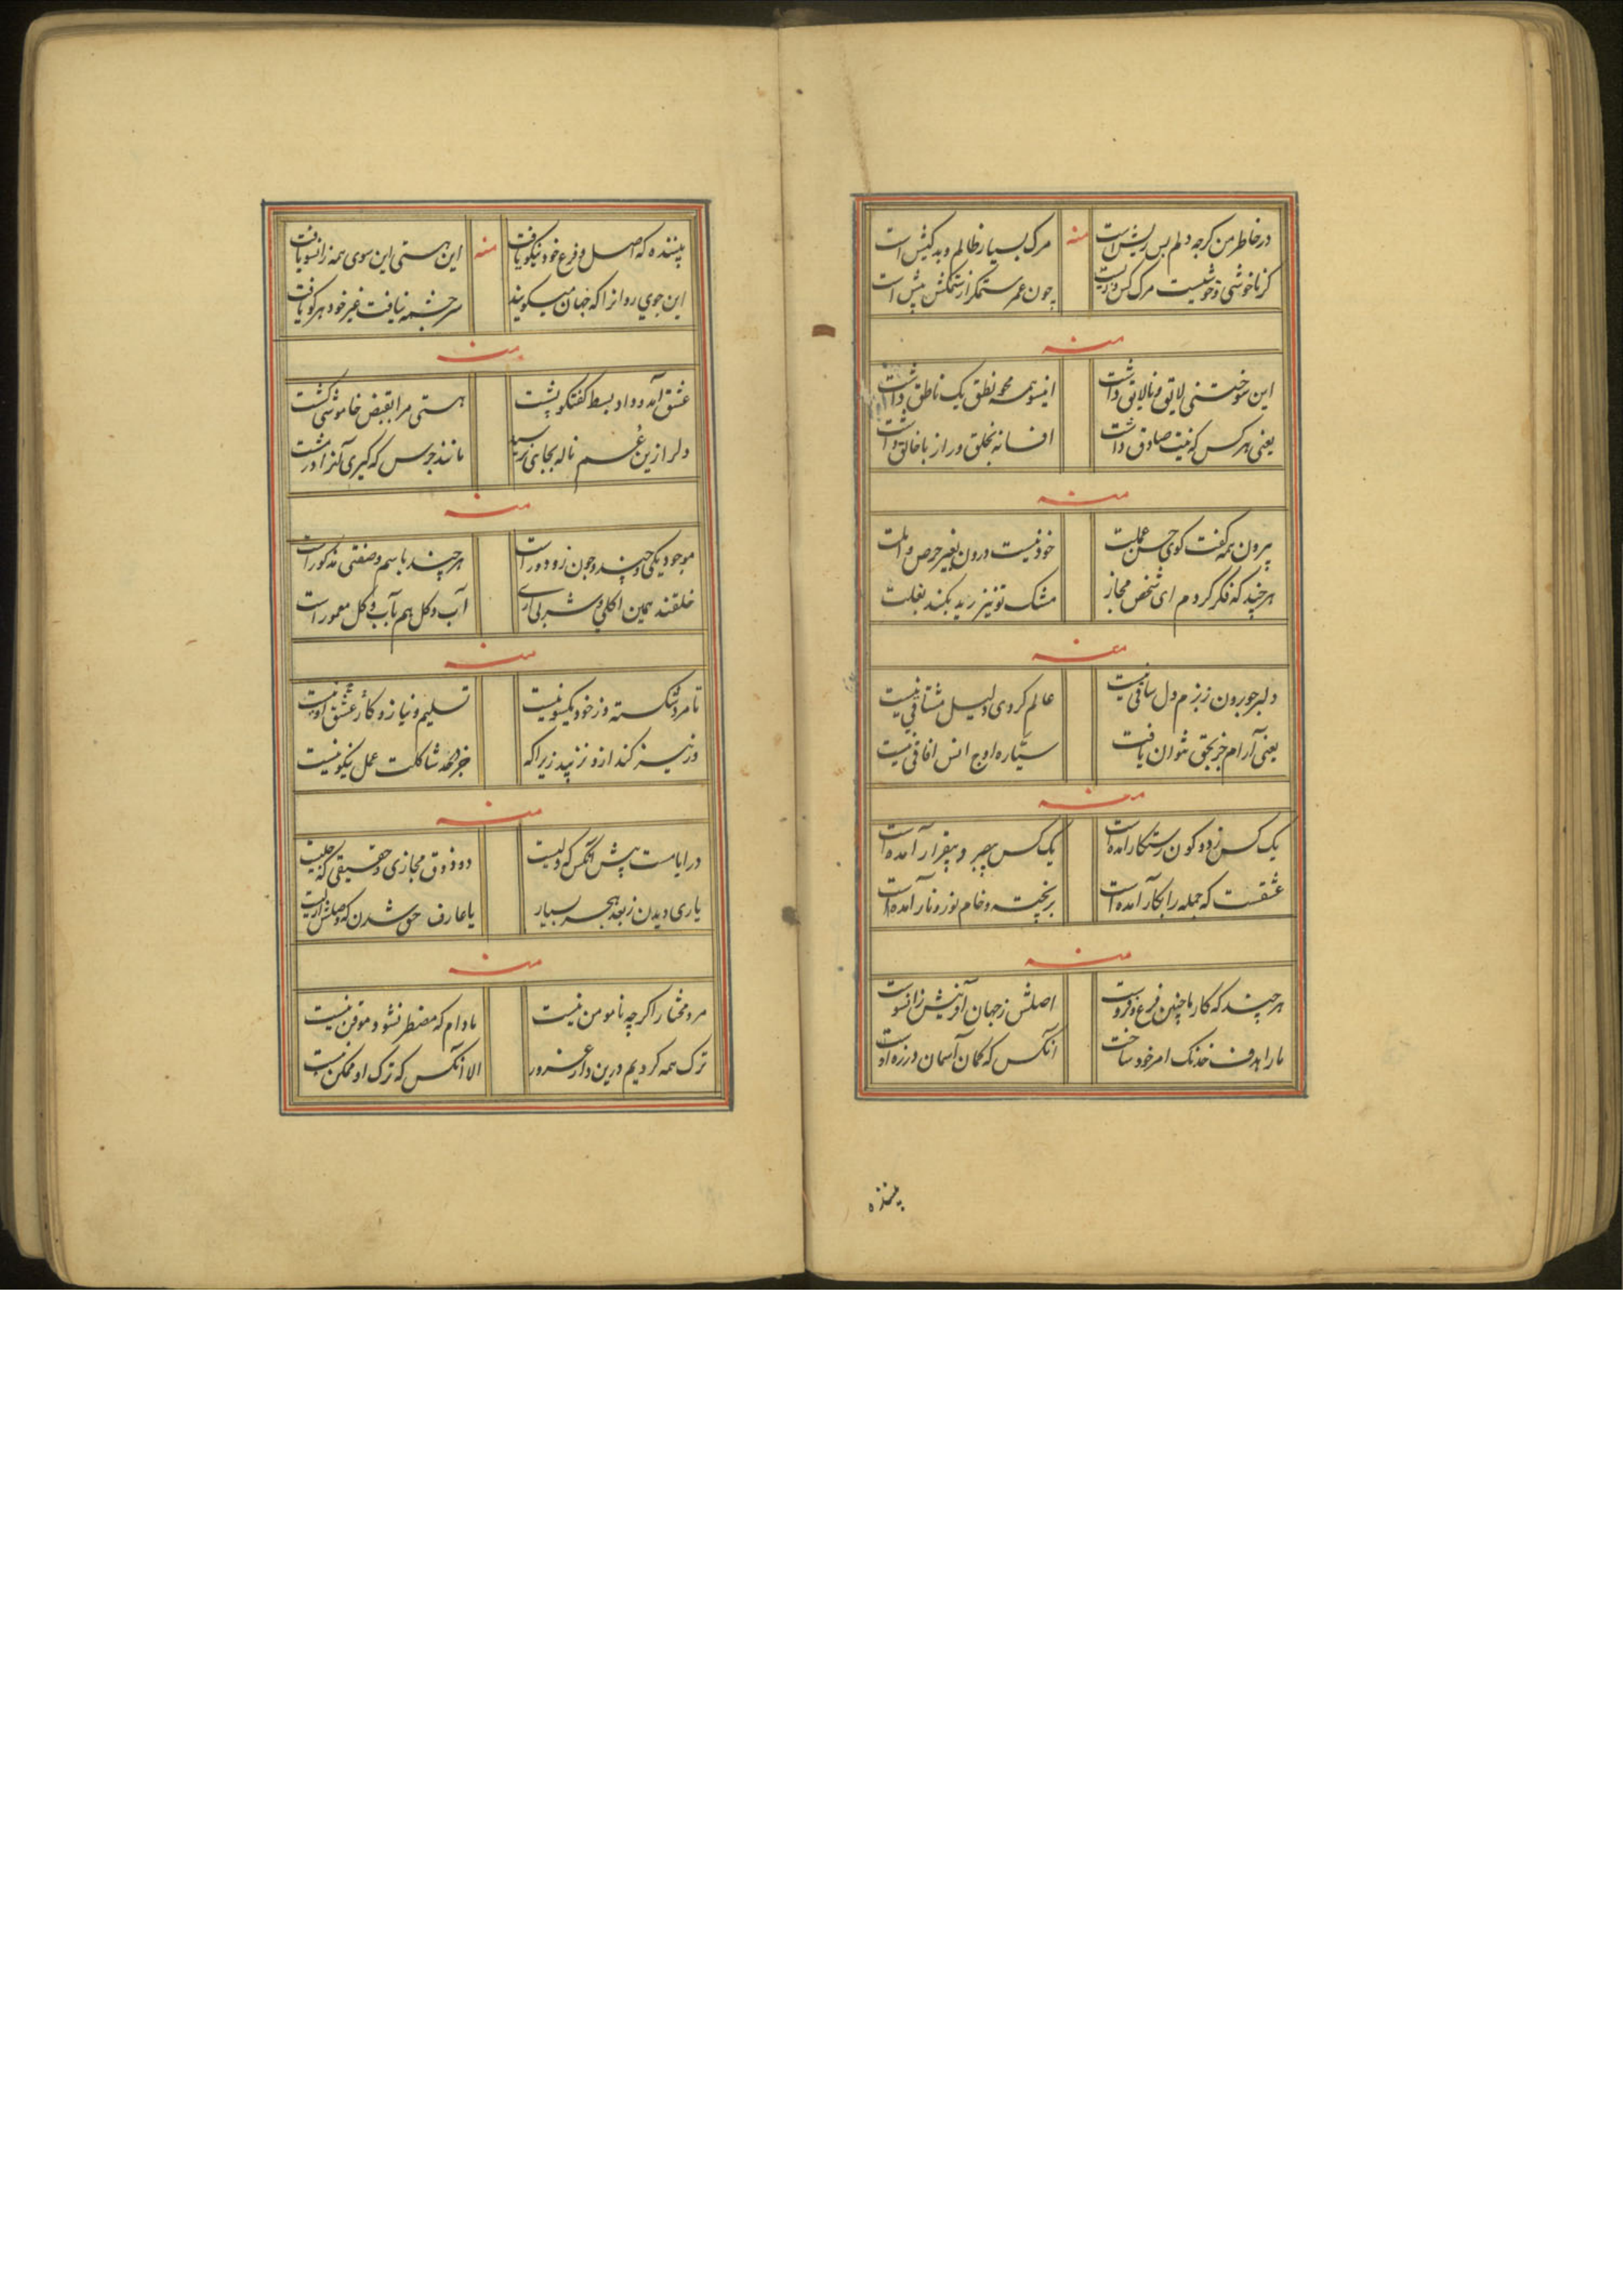 در خاطر من کرجه دلم بس ریش است منه مرک بسیار ظالم و بد کیش است
کر ناخوشی و خوشیست مرک کس چون عمر ستمکر از ستمکش پیش است
منه
این سوختنی لایق و نالایق داشت اینسو همه محو نطق یک ناطق داشت
یعنی هر کس که نیت صادق داشت افسانه بخلق و راز با خالق داشت
منه
بیرون همه کفت کوی حسن عملت خود نیست درون بغیر حرص و املت
هر چند که فکر کردم ای شخص مجاز مشک تو نیز رید بکند بغلت
منه
دلبر جو برون ز بزم دل ساقی نیست عالم کردی دلیل مشتاقی نیست
یعنی آرام جز بحق نتوان یافت سیاره اوج انس افاقی نیست
منه
یک کس ز دو کون رستکار آمده است یک کس بصبر و بیقرار آمده است
عشقست که جمله را بکار آمده است بر پخته و خام نور و نار آمده است
منه
هر چند که کار ما چنین فرع و فروست اصلش ز جهان آفرینش زانسوست
ما را هدف خدنک امر خود ساخت آنکس که کمان آسمان در زه اوست
بیننده
بیننده که اصل و فرع خود نیکو یافت منه این هستی این سوی همه زانسو یافت
این جوی روانرا که جهان میکویند سر چشمه نیافت غیر خود هر کو یافت
منه
عشق آمد و داد بسط کفتکو پشت هستی مرا بقبض خاموشی کشت
دلرا ازین غم ناله بجایی نرسید مانند جرس که کیری آنرا در مشت
منه
موجود یکی و چند و چون زو دور است هر چند باسم و صفتی مذکور است
خلقند همین اکلی و شربی آری آب و کل هم بآب و کل معمور است
منه
تا مرد شکسته وز خود یکسو نیست تسلیم و نیاز و کار عشق او نیست
ور نیز کند ازو نزیبد زیرا که جز در خور شاکلت عمل نیکو نیست
منه
در ایامست پیش آنکس که ولیست دو ذوق مجازی و حقیقی که جلیست
یاری دیدن ز بعد هجر بسیار یا عارف حق شدن که وصلش ازلیست
منه
مرد مختار اکر چه نامومن نیست مادام که مضطر نشود موقن نیست
ترک همه کردیم درین دار غرور الا آنکس که ترک او ممکن نیست